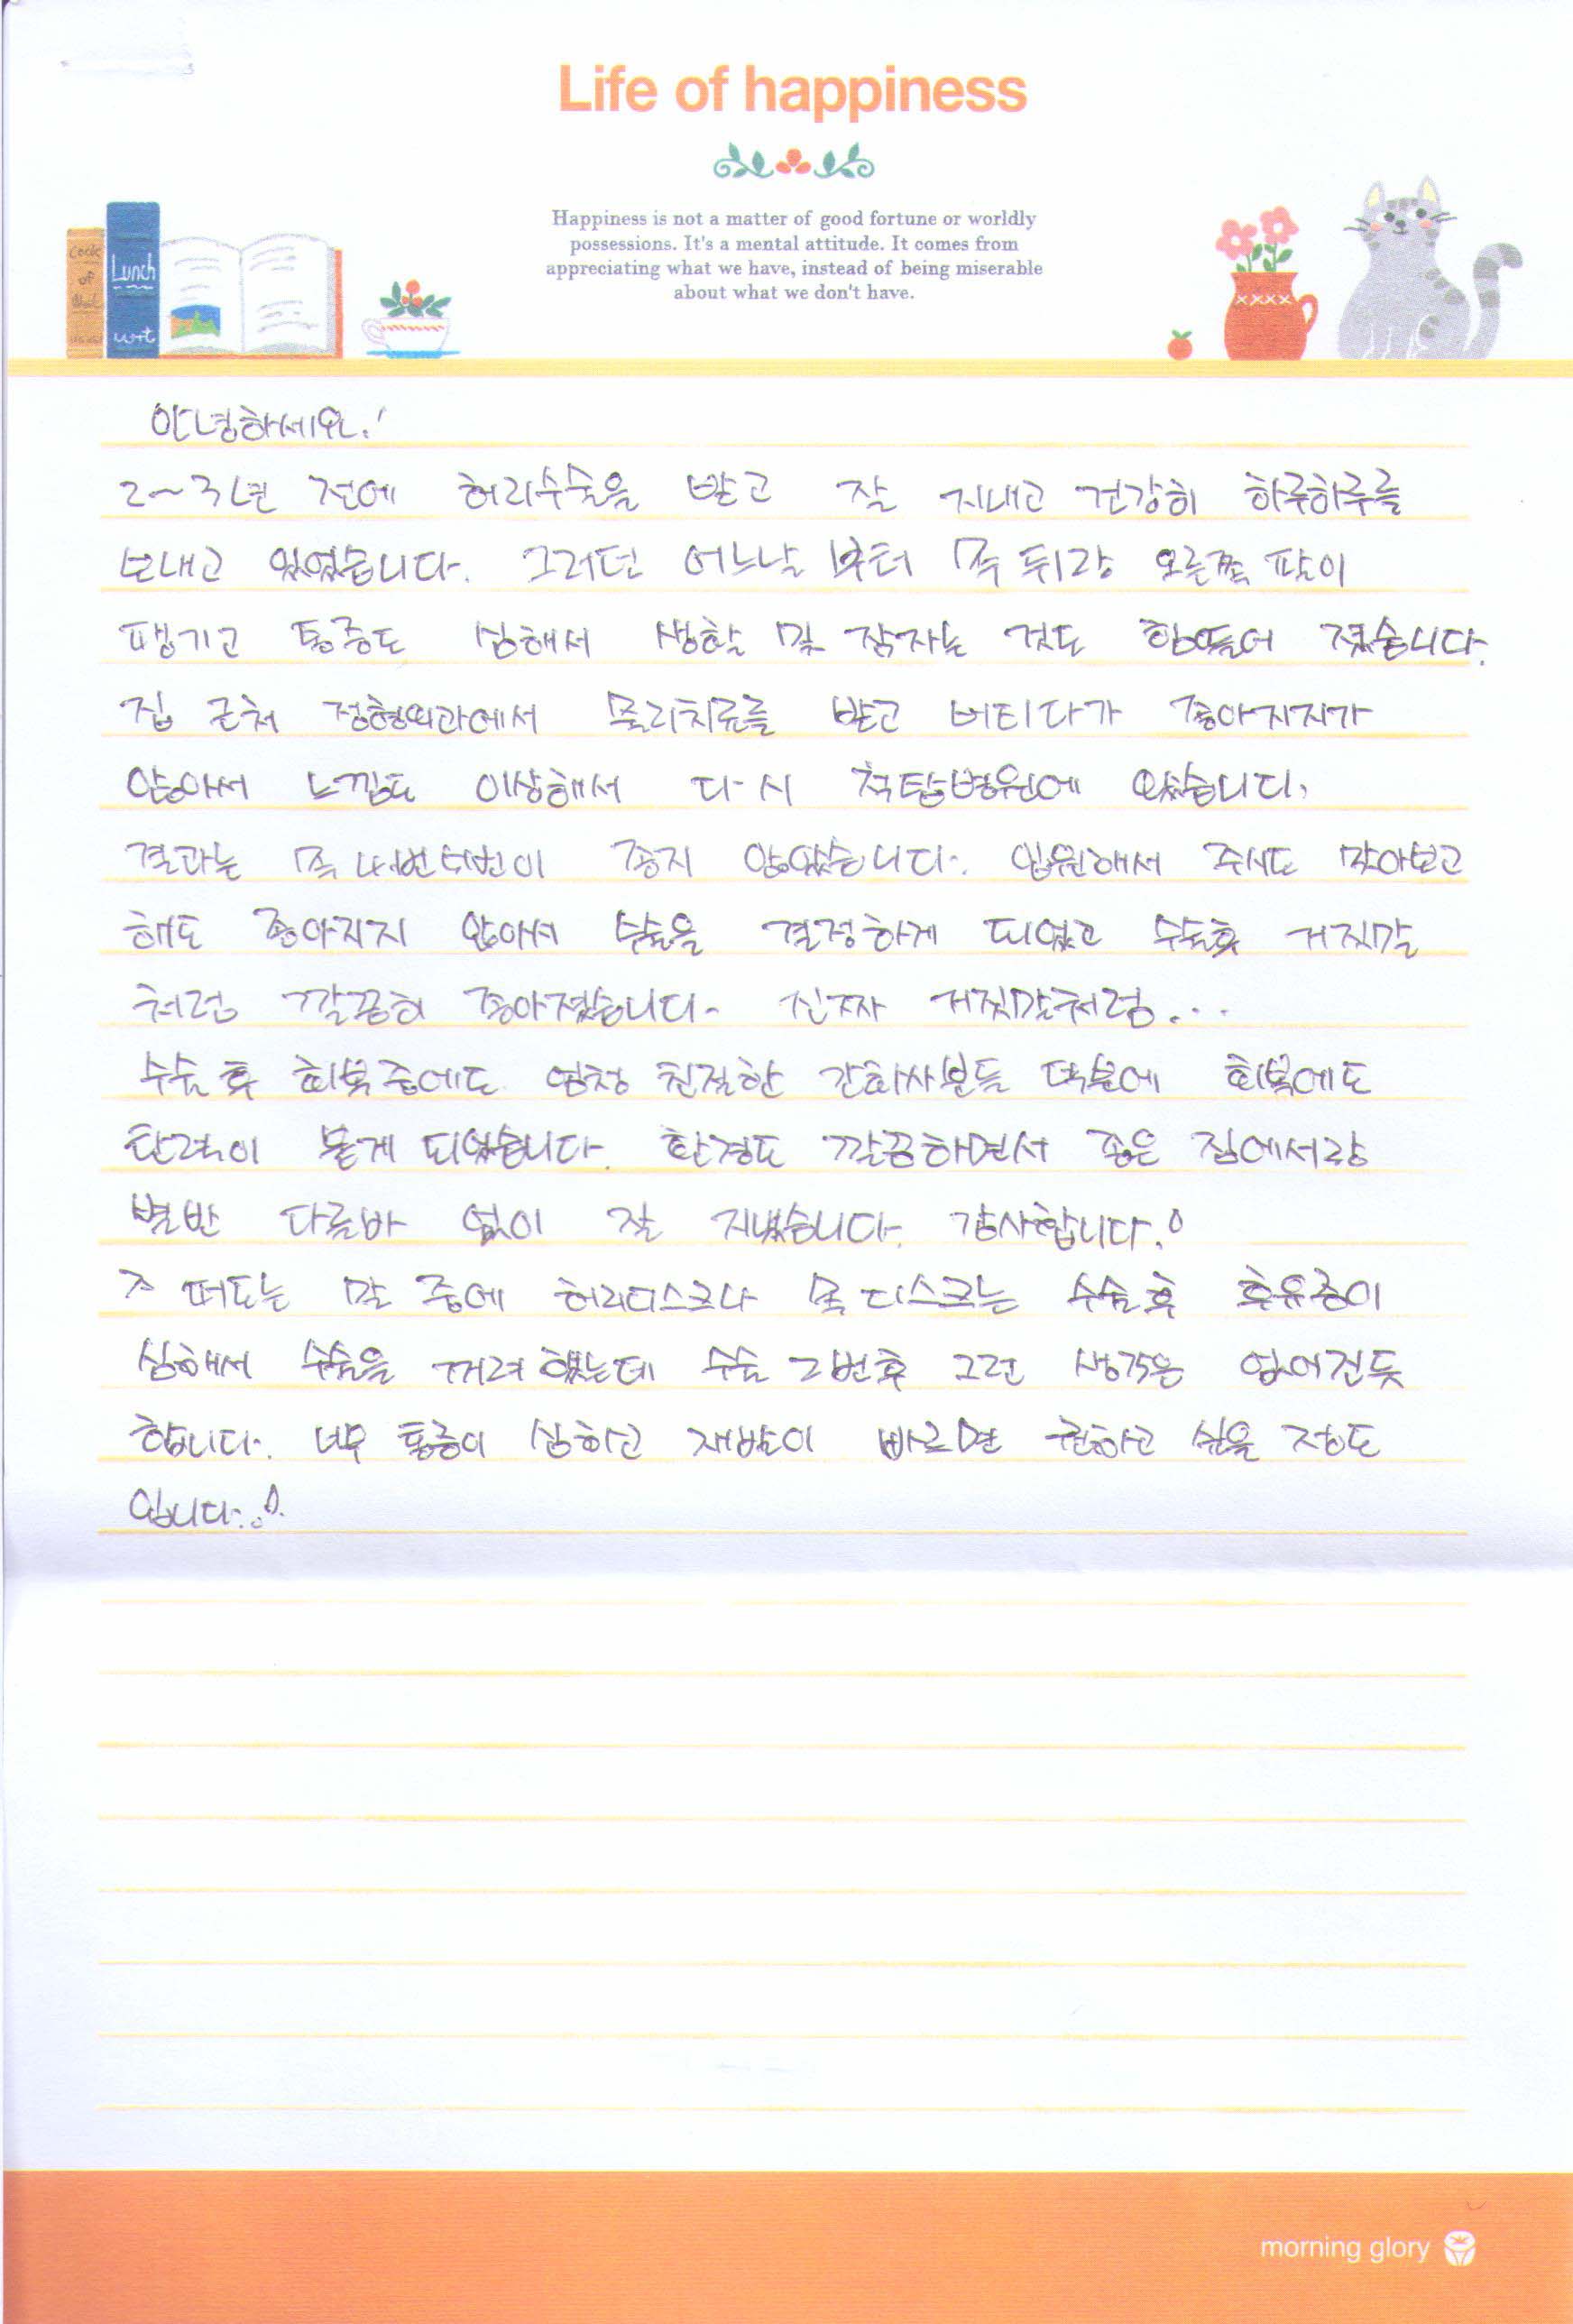 Life of happiness
Happiness is not a matter of good fortune or worldly
possessions. It's a mental attitude. It comes from
appreciating what we have, instead of being miserable
about what we don't have.
Cook
of
Lunch
안녕하세요!
2~3년 전에 허리수술을 받고 잘 지내고 건강히 하루하루를
보내고 있었습니다. 그러던 어느날 부터 목 뒤랑 오른쪽 팔이
땡기고 통증도 심해서 생활 및 잠자는 것도 힘들어 졌습니다.
집 근처 정형외과에서 물리치료를 받고 버티다가 좋아지지가
않아서 느낌도 이상해서 다시 척탑병원에 왔습니다.
결과는 목 네번 이 좋지 않았습니다. 입원해서 주사도 맞아보고
해도 좋아지지 않아서 수술을 결정하게 되었고 수술후 거짓말
처럼 깔끔히 좋아졌습니다. 진짜 거짓말처럼...
수술 후 회복 중에도 엄청 친절한 간호사분들 덕분에 회복에도
탄력이 붙게 되었습니다. 환경도 깔끔하면서 좋은 집에서랑
별반 다를바 없이 잘 지냈습니다. 감사합니다!
떠도는 말 중에 허리디스크나 목 디스크는 수술 후 후유증이
심해서 수술을 꺼려 했는데 수술 2번후 그런 생각은 없어진듯
합니다. 너무 통증이 심하고 재발이 빠르면 권하고 싶을 정도
입니다..!
morning glory